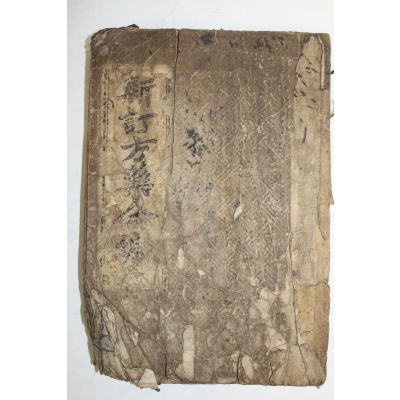 新訂方藥合編